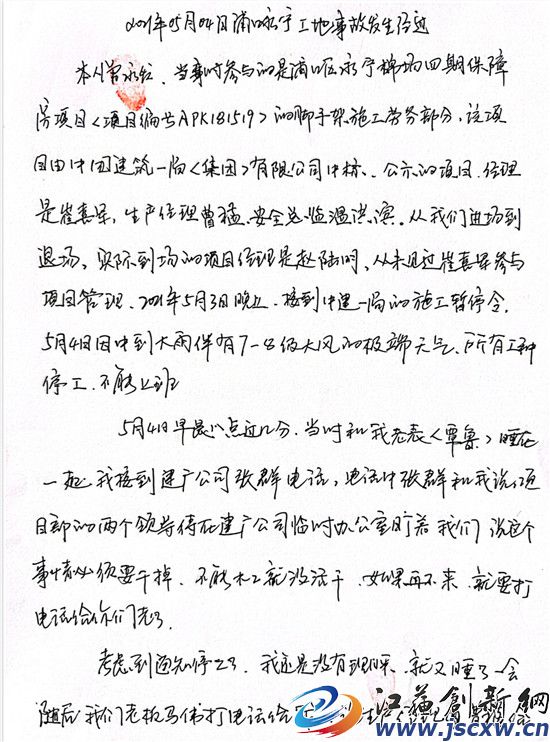 2021年05月04日浦口永宁工地事故发生经过
本人曾永红、当事时参与的是浦口区永宁 四期保障
房项目<项目编号APK181519>的脚手架施工劳务部分,该项
目由中国建筑一局<集团>有限公司中标、公示的项目经理
是崔喜军,生产经理曹猛、安全总监温洪滨。从我们进场到
退场,实际到场的项目经理是赵陆明,从未见过崔喜军参与
项目管理。2021年5月3日晚上,接到中建一局的施工暂停令。
5月4日因中到大雨伴有7-8级大风的极端天气、所有工种
停工、不能上班
5月4日早晨八点过几分,当时和我老表<覃鲁>睡在
一起 我接到建广公司张群电话,电话中张群和我说项
目部的两个领导待在建广公司临时办公室盯着我们 说这个
事情必须要干掉,不能木工就没活干,如果再不来,就要打
电话给你们老
考虑到通知停工了,我还是没有理睬,就又睡了一会
随后我们老板马伟打电话给
江苏创新网
www.jscxw.cn